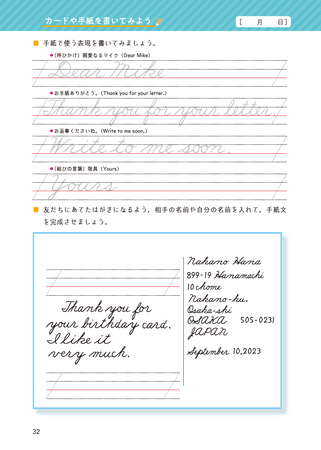 カードや手紙を書いてみよう
[ 月 日]
■ 手紙で使う表現を書いてみましょう。
●(呼びかけ) 親愛なるマイク (Dear Mike)
Dear Mike
●お手紙ありがとう。(Thank you for your letter.)
Thank you for your letter.
●お返事くださいね。(Write to me soon.)
Write to me soon.
●(結びの言葉) 敬具 (Yours)
Yours
■ 友だちにあてたはがきになるよう，相手の名前や自分の名前を入れて，手紙文
を完成させましょう。
Thank you for
your birthday card.
I like it
very much.
Nakano Hana
899-19 Hanamachi
10 chome
Nakano-ku,
Osaka-shi
OSAKA 505-0231
JAPAN
September 10,2023
32